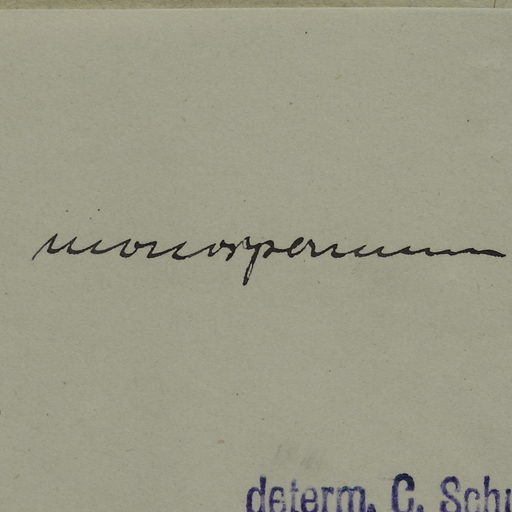 monospermum
determ. C. Schu